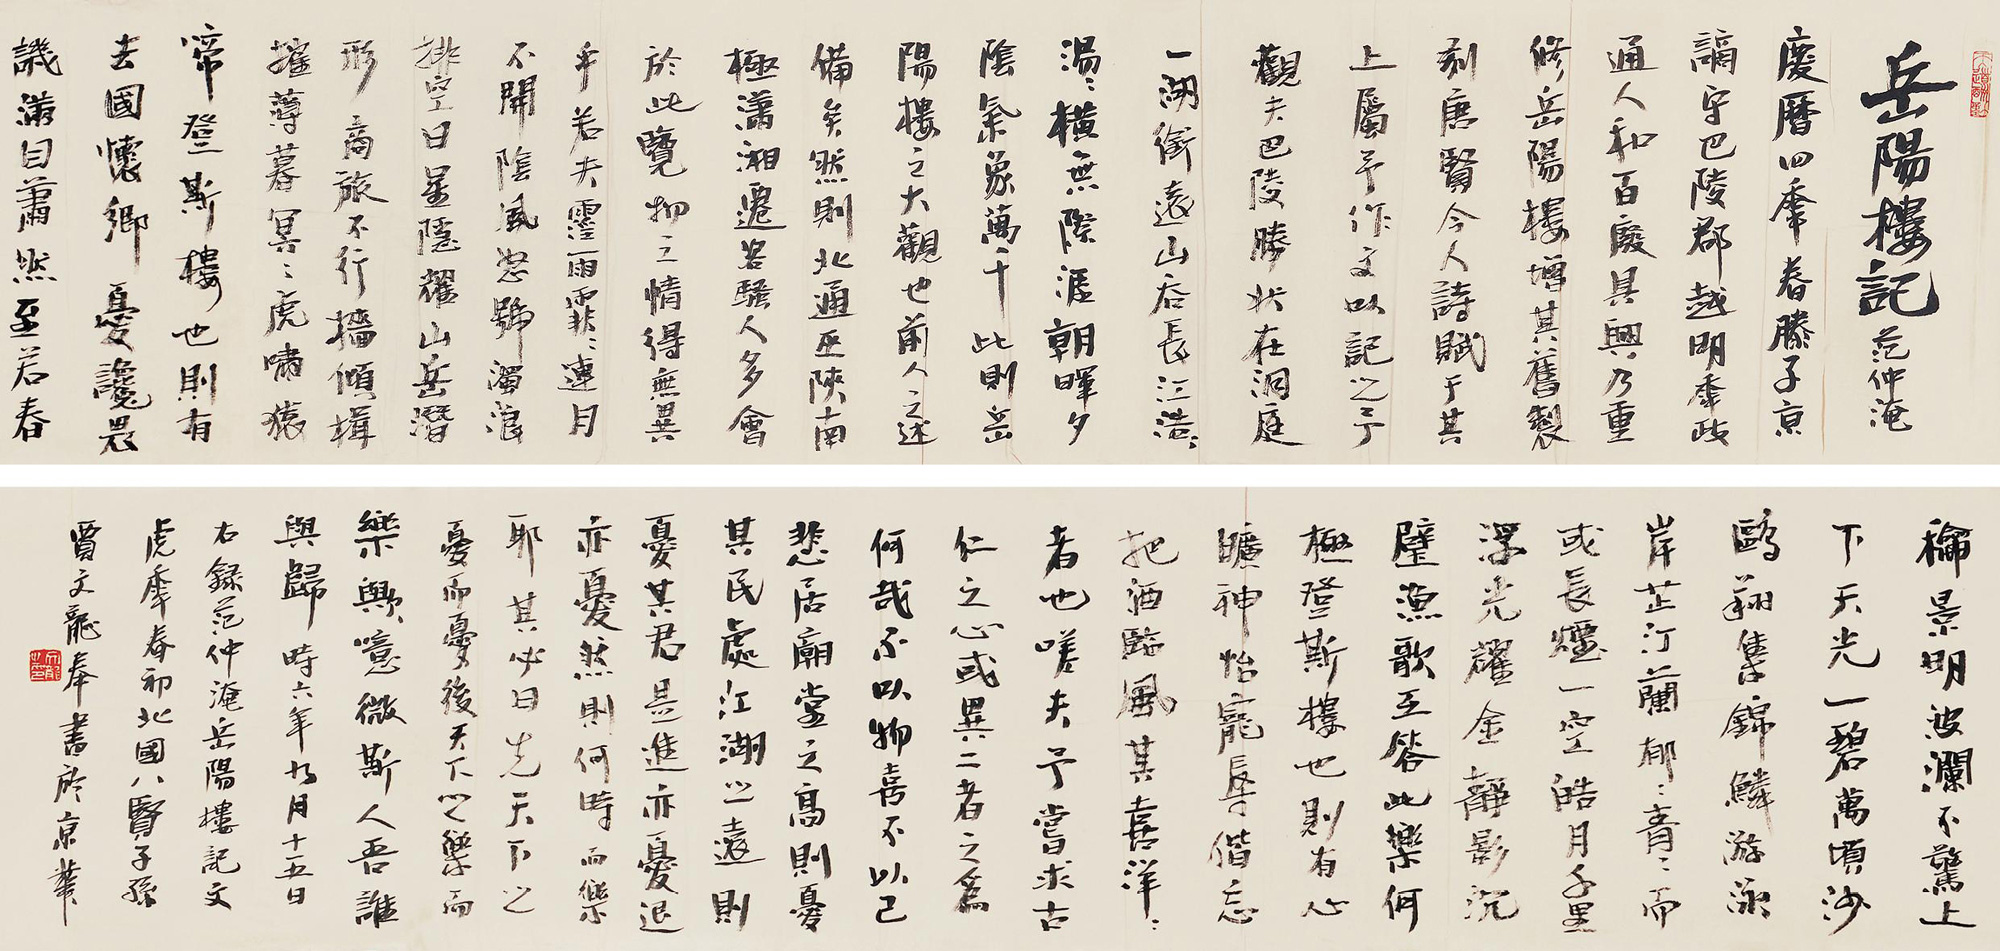 岳陽樓記 范仲淹
慶曆四年春滕子京
謫守巴陵郡越明年政
通人和百廢具興乃重
修岳陽樓增其舊製
刻唐賢今人詩賦于其
上屬予作文以記之予
觀夫巴陵勝狀在洞庭
一湖銜遠山吞長江浩〻
湯〻橫無際涯朝暉夕
陰氣象萬千此則岳
陽樓之大觀也前人之述
備矣然則北通巫陝南
極瀟湘遷客騷人多會
於此覽物之情得無異
乎若夫霪雨霏〻連月
不開陰風怒號濁浪
排空日星隱耀山岳潛
形商旅不行檣傾楫
摧薄暮冥〻虎嘯猿
啼登斯樓也則有
去國懷鄉憂讒畏
譏滿目蕭然至若春
和景明波瀾不驚上
下天光一碧萬頃沙
鷗翔集錦鱗游泳
岸芷汀蘭郁〻青〻而
或長煙一空皓月千里
浮光耀金靜影沉
璧漁歌互答此樂何
極登斯樓也則有心
曠神怡寵辱偕忘
把酒臨風其喜洋〻
者也嗟夫予嘗求古
仁之心或異二者之為
何哉不以物喜不以己
悲居廟堂之高則憂
其民處江湖之遠則
憂其君是進亦憂退
亦憂然則何時而樂
耶其必曰先天下之
憂而憂後天下之樂而
樂與歟噫微斯人吾誰
與歸 時六年九月十五日
右錄范仲淹岳陽樓記文
虎年春初北國八賢子孫
賈文龍奉書於京華